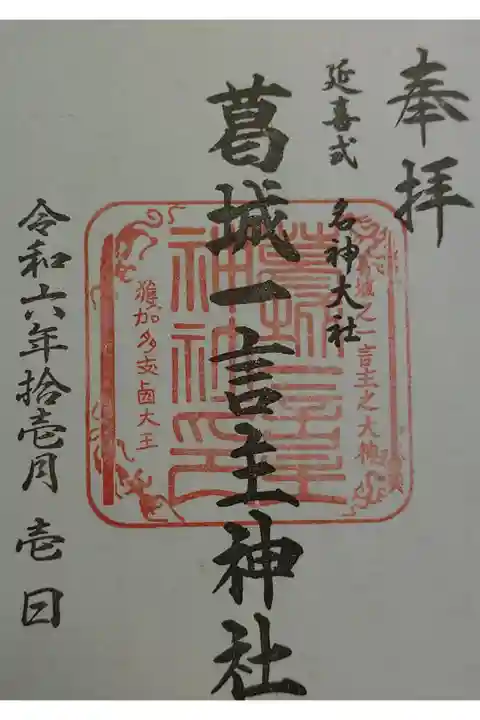 奉拝
延喜式 名神大社
葛城一言主神社
葛城之一言主之大神
獲加多支鹵大王
令和六年拾壱月壱日